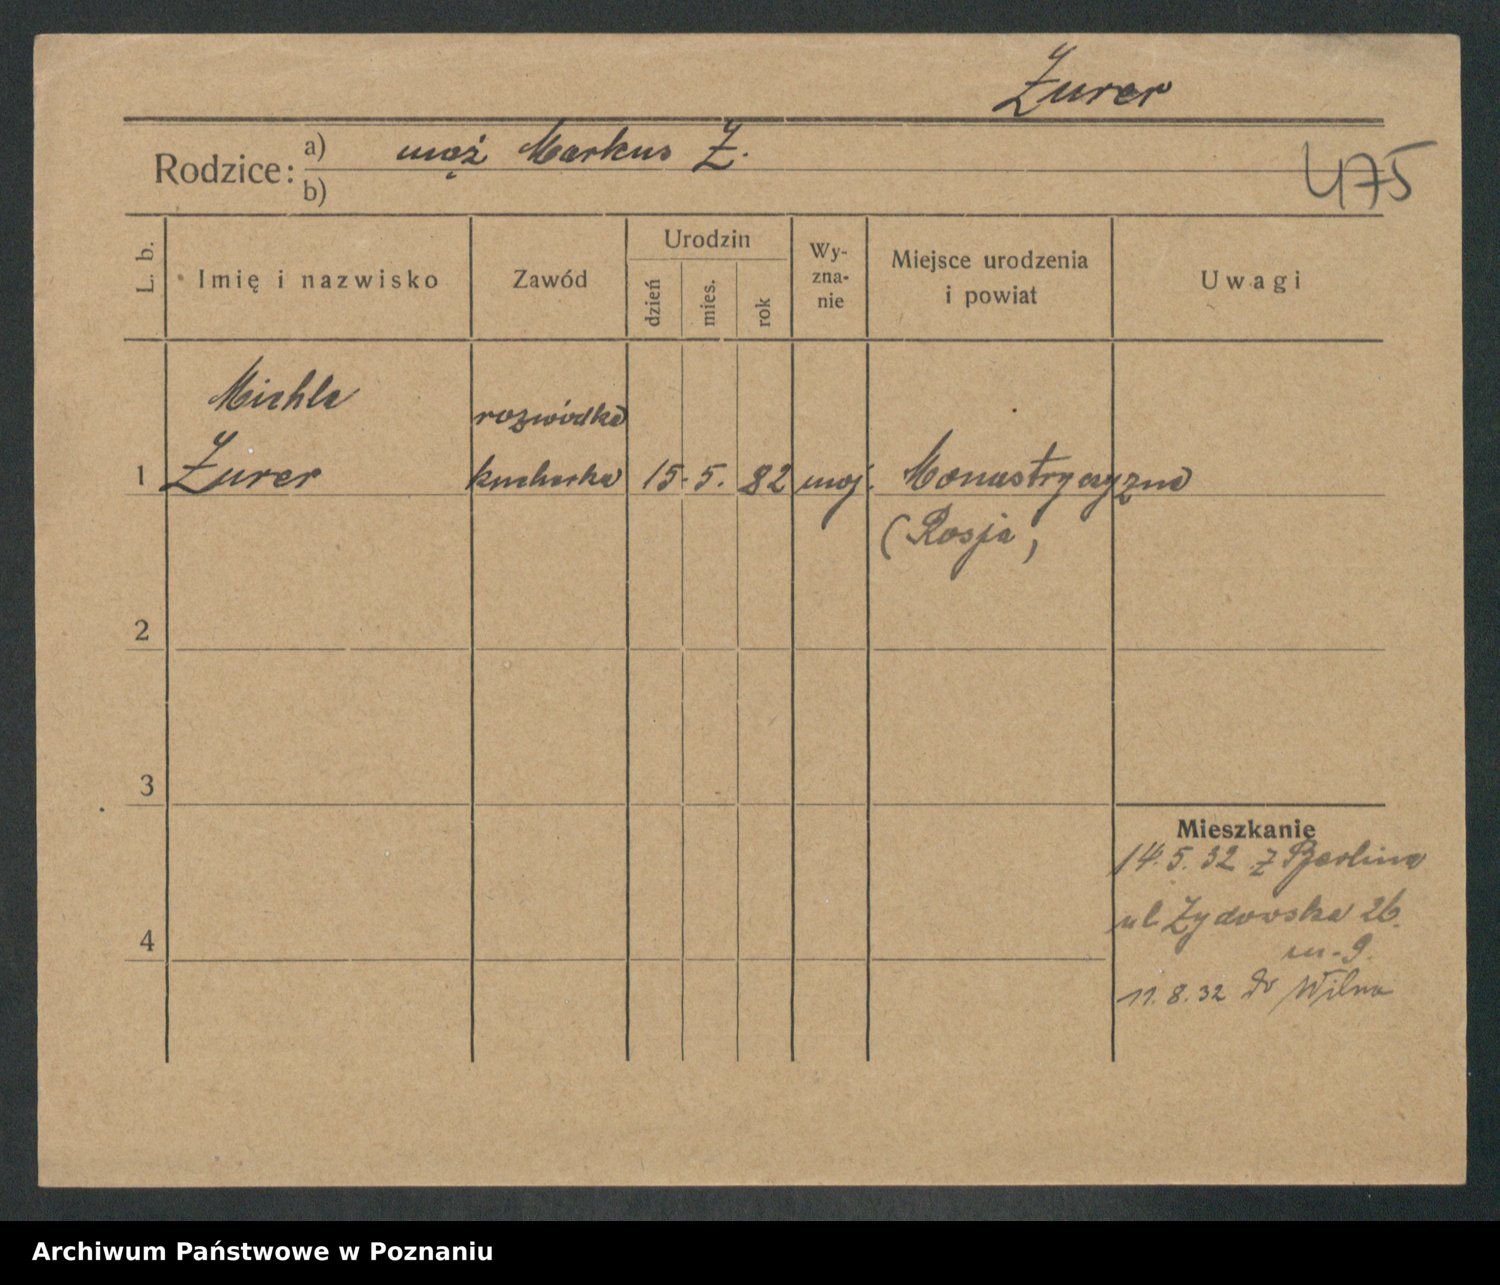 Żurer
Rodzice: a) mąż Markus Ż.
b)
475
L. b.
Imię i nazwisko
Zawód
Urodzin
dzień
mies.
rok
Wy-
zna-
nie
Miejsce urodzenia
i powiat
Uwagi
Michle
rozwódka
1 Żurer kucharka 15. 5. 82 moj. Monastryczyzna
(Rosja)
2
3
Mieszkanie
14.5.32 z Berlina
ul. Żydowska 26.
4
m. 9.
11.8.32 do Wilna
Archiwum Państwowe w Poznaniu